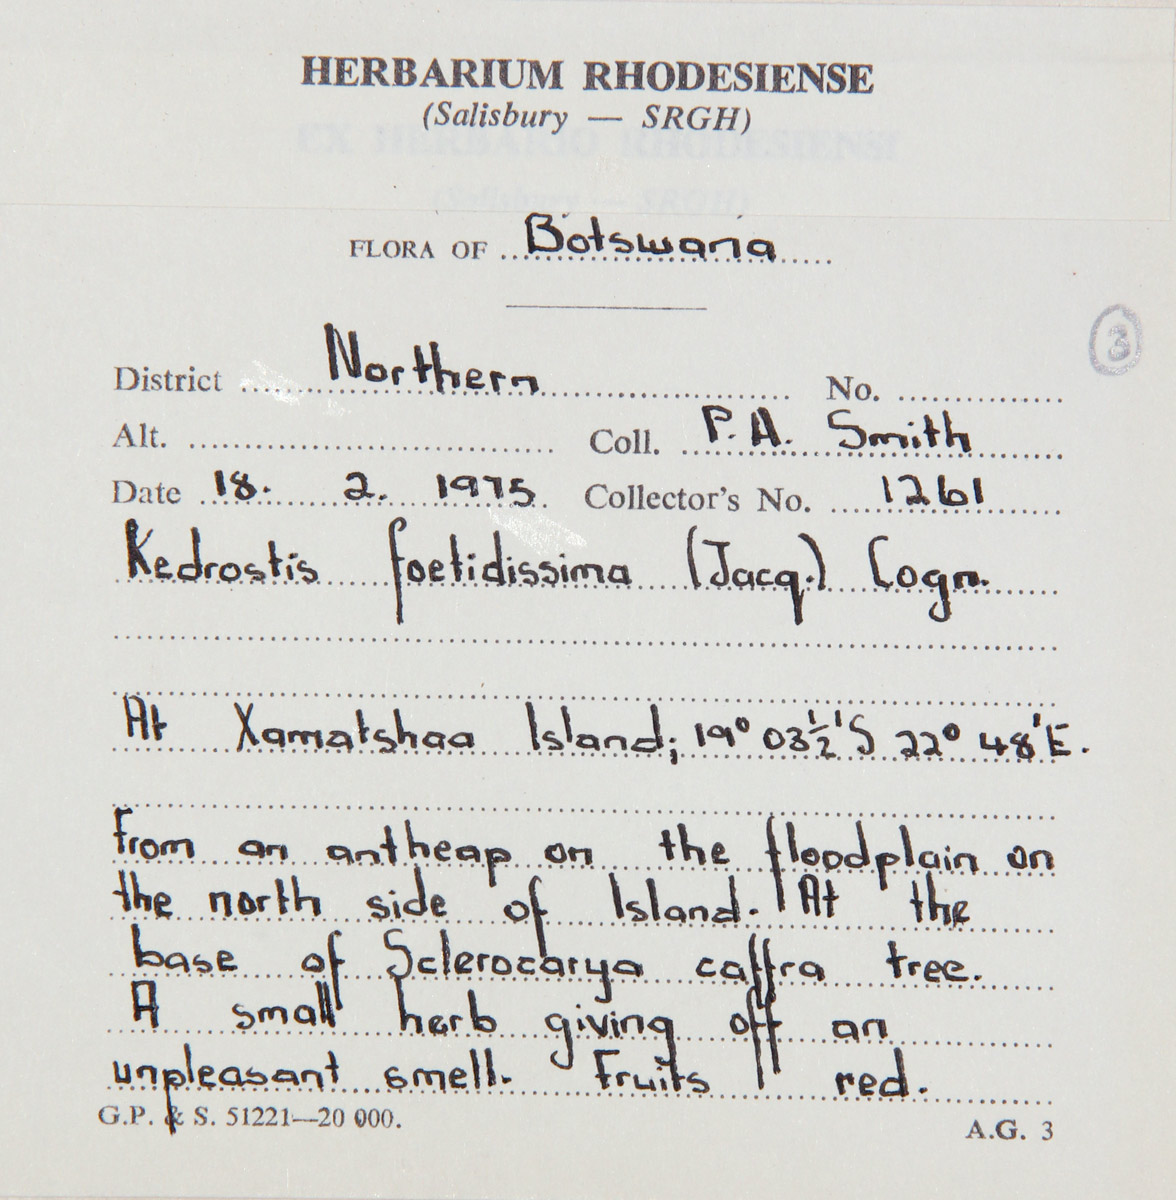 HERBARIUM RHODESIENSE
(Salisbury — SRGH)
EX HERBARIO RHODESIENSI
(Salisbury — SRGH)
FLORA OF Botswana
3
District Northern No.
Alt. Coll. P. A. Smith
Date 18. 2. 1975 Collector's No. 1261
Kedrostis foetidissima (Jacq.) Cogn.
At Xamatshaa Island; 19° 03½'S 22° 48'E.
From an antheap on the floodplain on
the north side of Island. At the
base of Sclerocarya caffra tree.
A small herb giving off an
unpleasant smell. Fruits red.
G.P. & S. 51221—20 000. A.G. 3